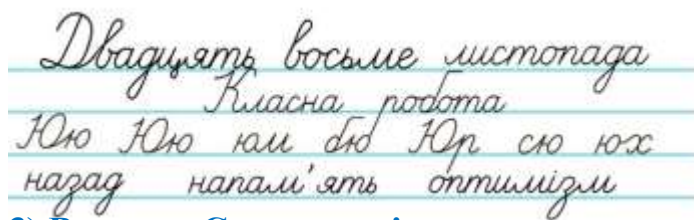 Двадцять восьме листопада
Класна робота
Юю Юю юм бю Юр сю юх
назад напам'ять оптимізм